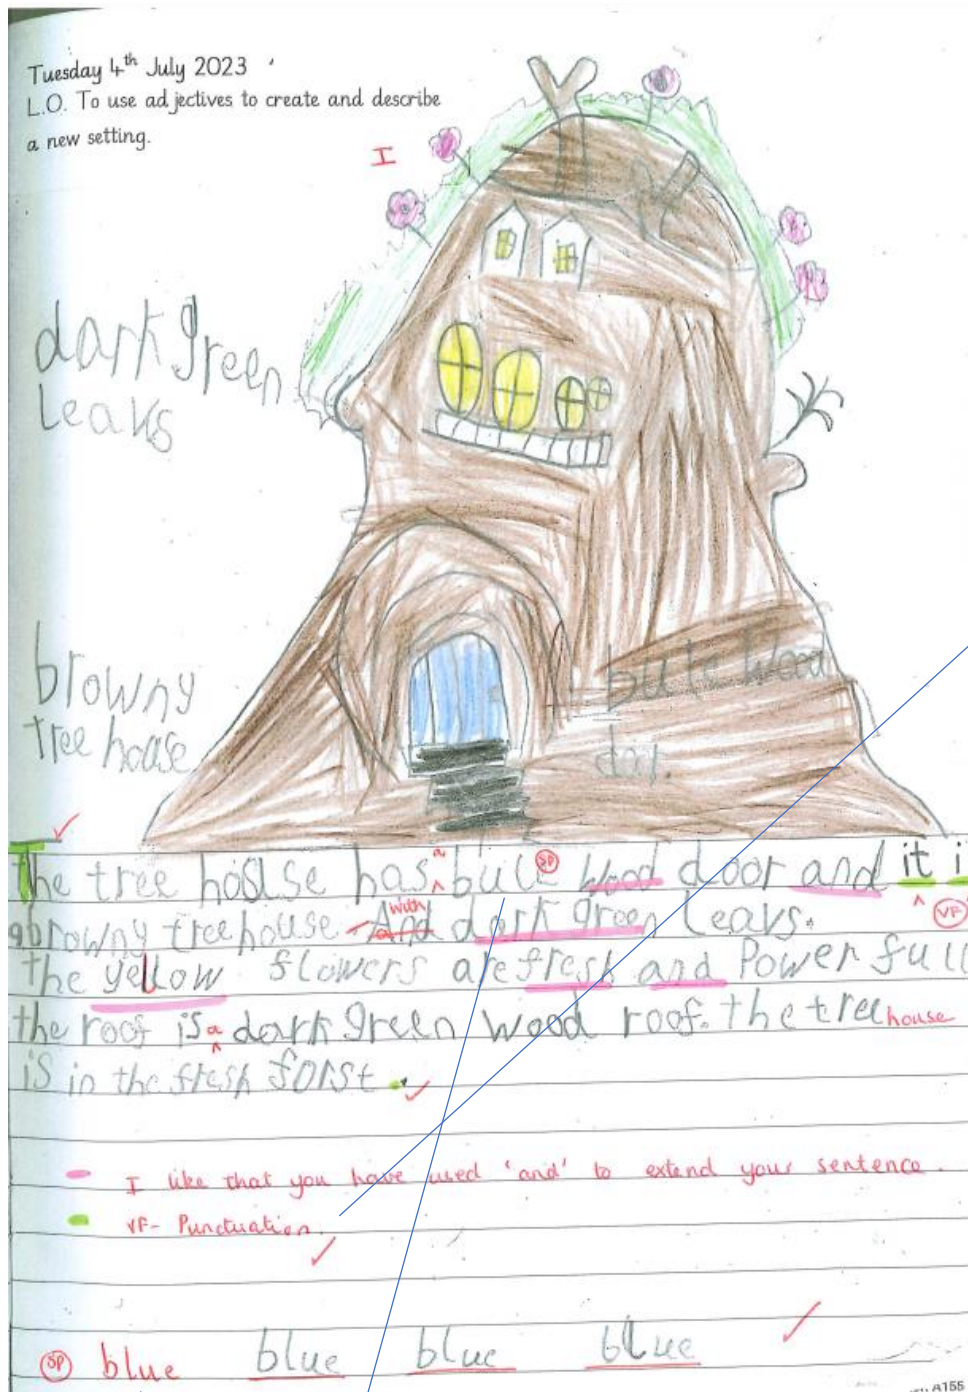 Tuesday 4th July 2023
L.O. To use adjectives to create and describe
a new setting.
I
dark green
Leavs
browny
tree house
bule wood
dor.
The tree house has a bule SP wood door and it i
a browny treehouse And with dark green leavs. VF
the yellow flowers are fresh and Powerfull
the roof is a dark green wood roof. the tree house
is in the fresh forst.
I like that you have used 'and' to extend your sentence.
VF- Punctuation.
SP blue blue blue blue
A155